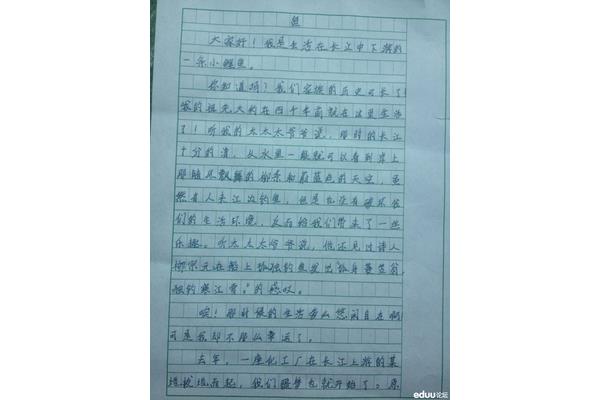 鱼
大家好！我是生活在长江中下游的
一条小鲤鱼。
你知道吗？我们家族的历史可长了
我的祖先大约在四千年前就在这里生活
了！听我的太太太爷爷说，那时的长江
十分的清，从水里一眼就可以看到岸上
那随风飘舞的柳条和蔚蓝色的天空，虽
然有人来江边钓鱼，但是也没有破坏我
们的生活环境，反而给我们带来了一些
乐趣。听太太太爷爷说，他还见过诗人
柳宗元在船上孤独钓鱼发出“孤身蓑笠翁，
独钓寒江雪。”的感叹。
唉！那时候的生活多么悠闲自在啊
可是我却不那么幸运了。
去年，一座化工厂在长江上游的某
地拔地而起，我们噩梦也就开始了。原
eduu论坛